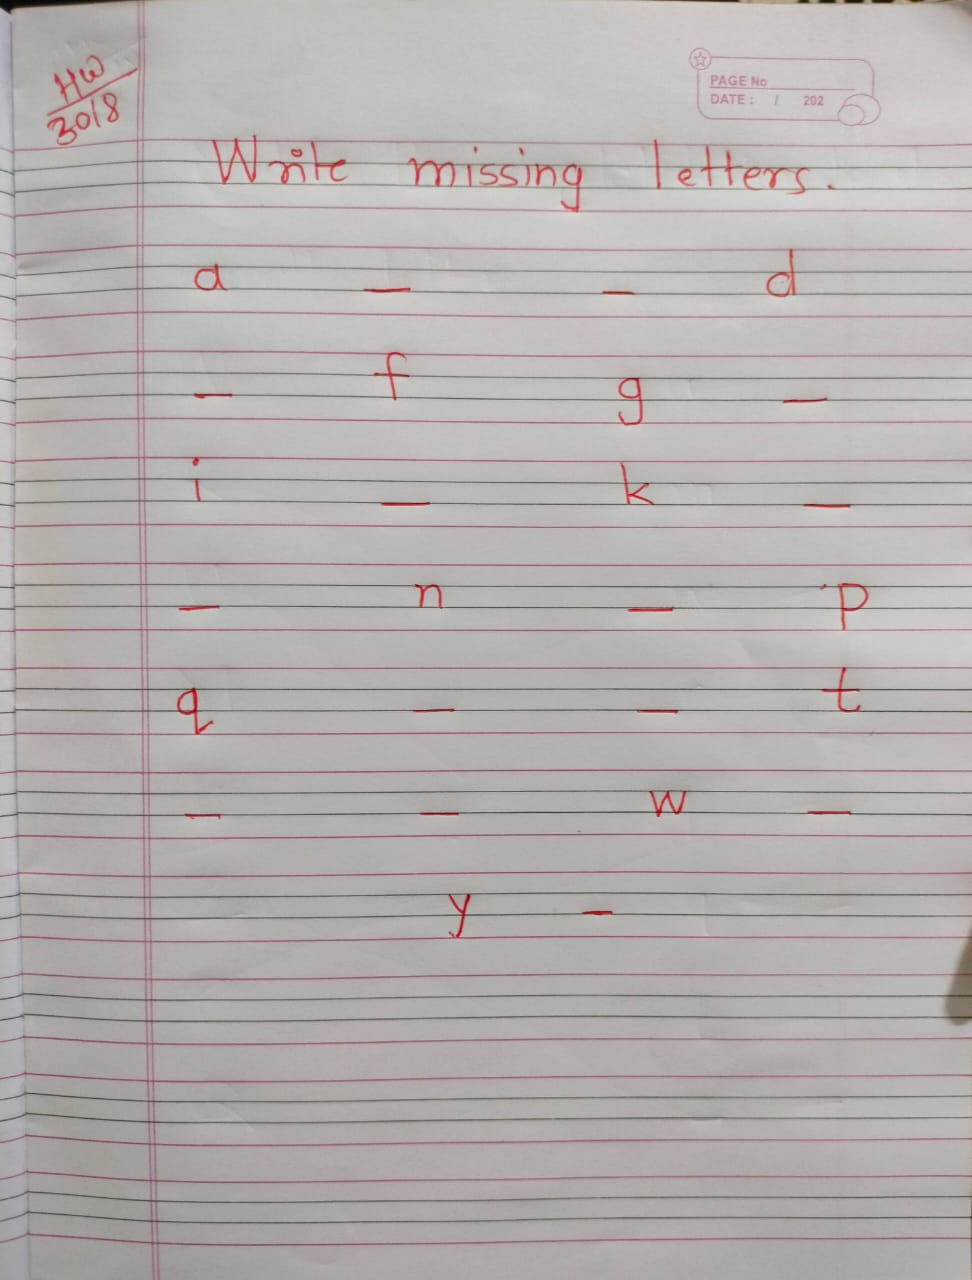 HW
30/8
PAGE No
DATE : / 202
Write missing letters.
a _ _ d
_ f g _
i _ k _
_ n _ p
q _ _ t
_ _ w _
y _